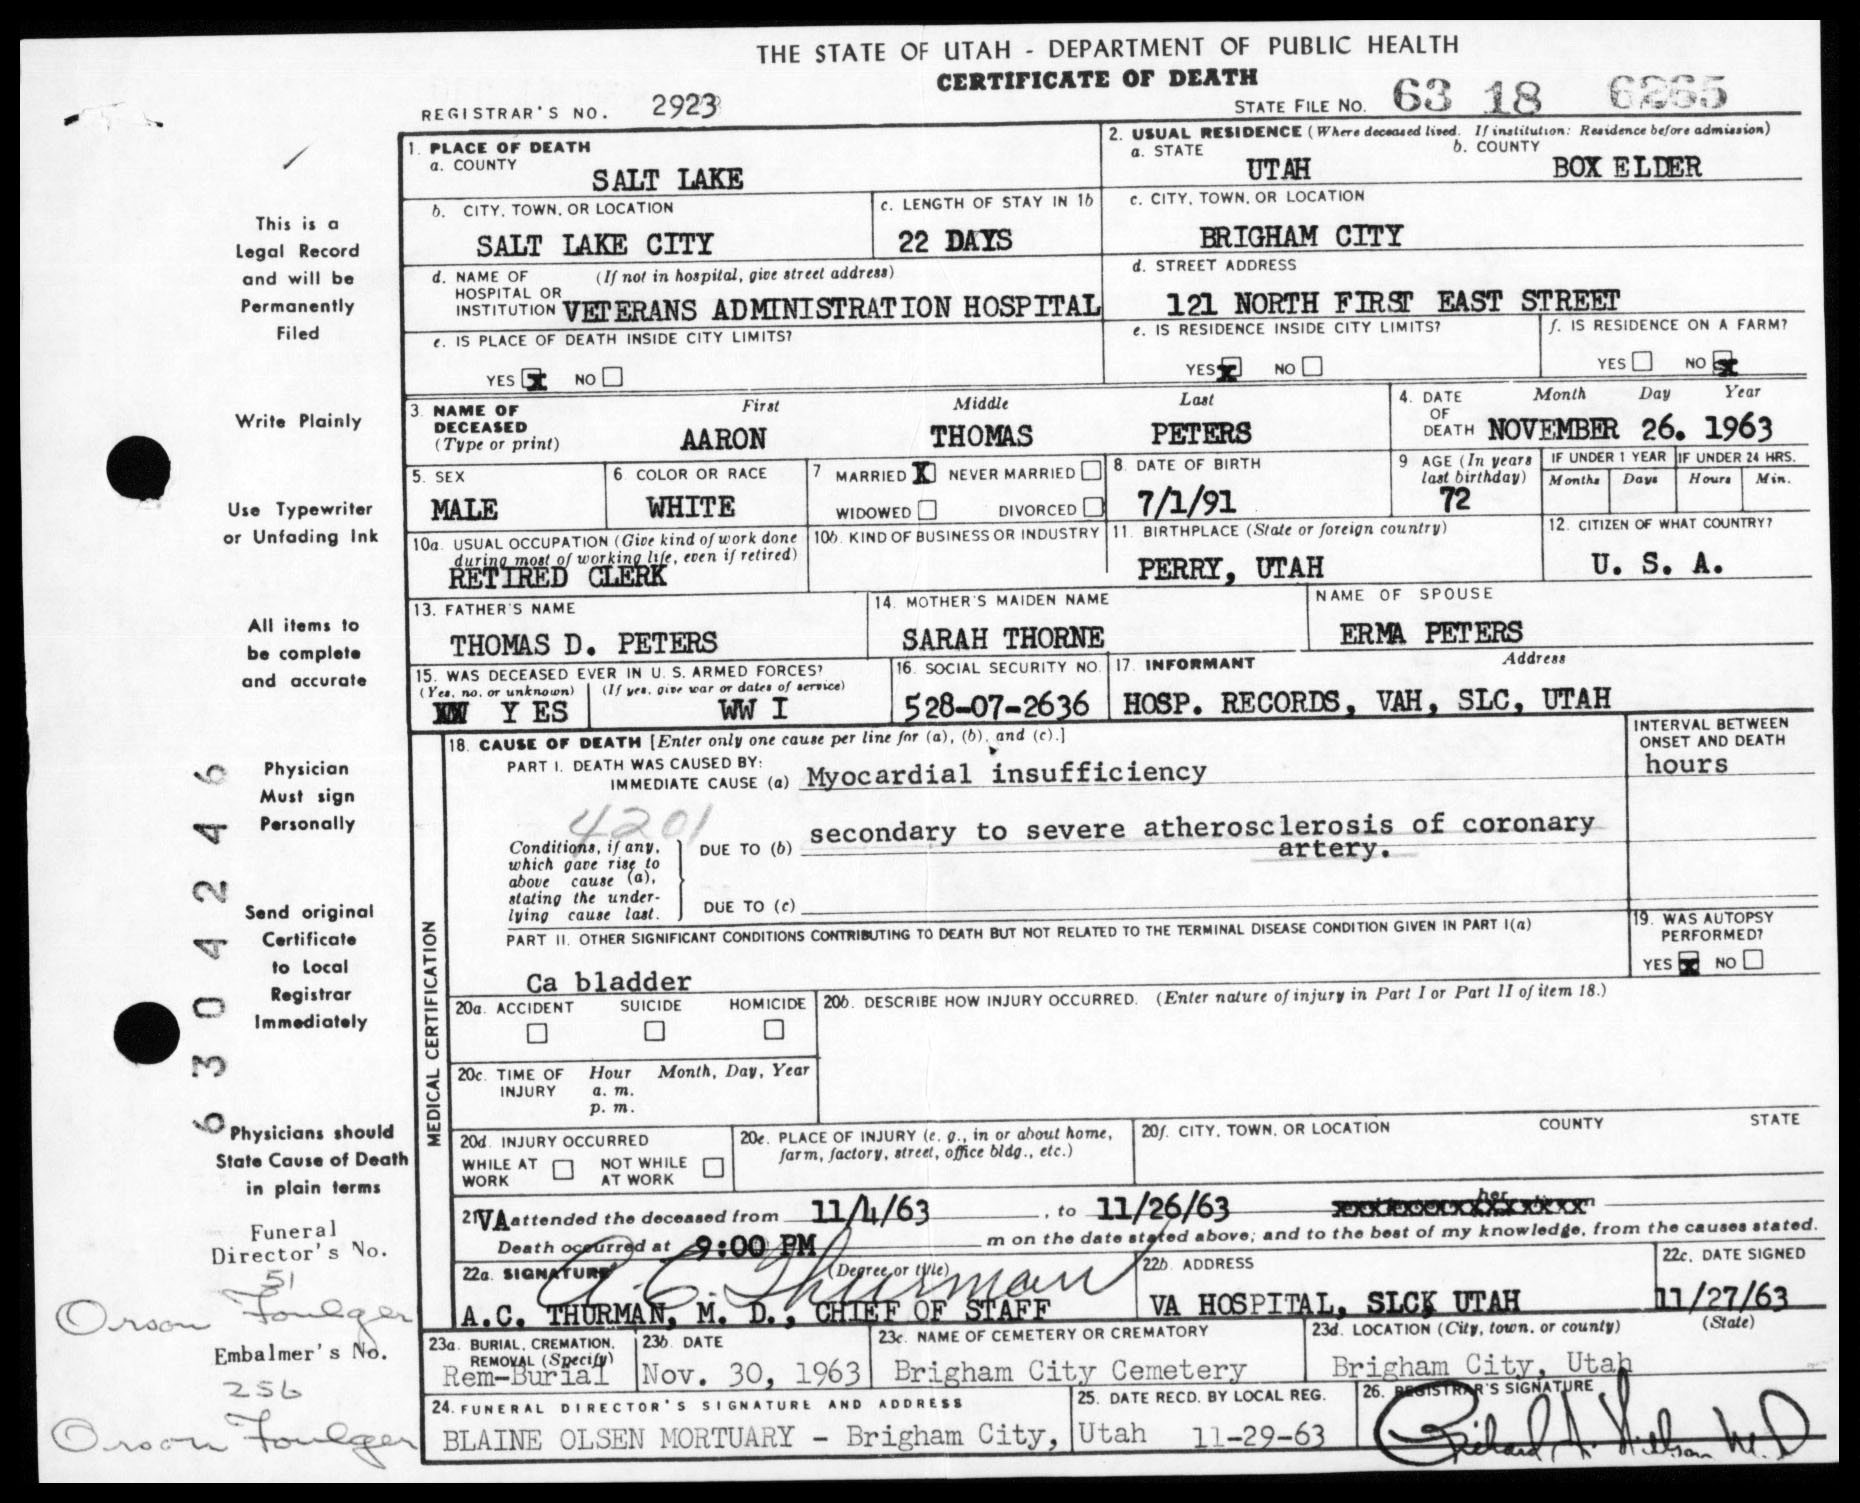 THE STATE OF UTAH - DEPARTMENT OF PUBLIC HEALTH
CERTIFICATE OF DEATH
REGISTRAR'S NO. 2923
STATE FILE NO. 63 18 6265
1. PLACE OF DEATH
a. COUNTY
SALT LAKE
2. USUAL RESIDENCE (Where deceased lived. If institution: Residence before admission)
a. STATE
UTAH
b. COUNTY
BOX ELDER
b. CITY, TOWN, OR LOCATION
SALT LAKE CITY
c. LENGTH OF STAY IN 1b
22 DAYS
c. CITY, TOWN, OR LOCATION
BRIGHAM CITY
d. NAME OF HOSPITAL OR INSTITUTION
(If not in hospital, give street address)
VETERANS ADMINISTRATION HOSPITAL
d. STREET ADDRESS
121 NORTH FIRST EAST STREET
e. IS PLACE OF DEATH INSIDE CITY LIMITS?
YES X NO
e. IS RESIDENCE INSIDE CITY LIMITS?
YES X NO
f. IS RESIDENCE ON A FARM?
YES NO X
3. NAME OF DECEASED
(Type or print)
First Middle Last
AARON THOMAS PETERS
4. DATE OF DEATH
Month Day Year
NOVEMBER 26. 1963
5. SEX
MALE
6. COLOR OR RACE
WHITE
7 MARRIED X NEVER MARRIED
WIDOWED DIVORCED
8. DATE OF BIRTH
7/1/91
9 AGE (In years last birthday)
72
IF UNDER 1 YEAR
Months Days
IF UNDER 24 HRS.
Hours Min.
10a. USUAL OCCUPATION (Give kind of work done during most of working life, even if retired)
RETIRED CLERK
10b. KIND OF BUSINESS OR INDUSTRY
11. BIRTHPLACE (State or foreign country)
PERRY, UTAH
12. CITIZEN OF WHAT COUNTRY?
U. S. A.
13. FATHER'S NAME
THOMAS D. PETERS
14. MOTHER'S MAIDEN NAME
SARAH THORNE
NAME OF SPOUSE
ERMA PETERS
15. WAS DECEASED EVER IN U. S. ARMED FORCES?
(Yes, no, or unknown) (If yes, give war or dates of service)
YES WW I
16. SOCIAL SECURITY NO.
528-07-2636
17. INFORMANT Address
HOSP. RECORDS, VAH, SLC, UTAH
MEDICAL CERTIFICATION
18. CAUSE OF DEATH [Enter only one cause per line for (a), (b), and (c).]
INTERVAL BETWEEN ONSET AND DEATH
PART I. DEATH WAS CAUSED BY:
IMMEDIATE CAUSE (a) Myocardial insufficiency
hours
4201
Conditions, if any, which gave rise to above cause (a), stating the underlying cause last.
DUE TO (b) secondary to severe atherosclerosis of coronary
artery.
DUE TO (c)
PART II. OTHER SIGNIFICANT CONDITIONS CONTRIBUTING TO DEATH BUT NOT RELATED TO THE TERMINAL DISEASE CONDITION GIVEN IN PART I(a)
Ca bladder
19. WAS AUTOPSY PERFORMED?
YES X NO
20a. ACCIDENT SUICIDE HOMICIDE
20b. DESCRIBE HOW INJURY OCCURRED. (Enter nature of injury in Part I or Part II of item 18.)
20c. TIME OF INJURY
Hour Month, Day, Year
a. m.
p. m.
20d. INJURY OCCURRED
WHILE AT WORK NOT WHILE AT WORK
20e. PLACE OF INJURY (e. g., in or about home, farm, factory, street, office bldg., etc.)
20f. CITY, TOWN, OR LOCATION COUNTY STATE
21 VA attended the deceased from 11/4/63, to 11/26/63
Death occurred at 9:00 PM m on the date stated above; and to the best of my knowledge, from the causes stated.
22a. SIGNATURE (Degree or title)
A. C. Thurman
A.C. THURMAN, M. D., CHIEF OF STAFF
22b. ADDRESS
VA HOSPITAL, SLCK UTAH
22c. DATE SIGNED
11/27/63
23a. BURIAL, CREMATION, REMOVAL (Specify)
Rem-Burial
23b. DATE
Nov. 30, 1963
23c. NAME OF CEMETERY OR CREMATORY
Brigham City Cemetery
23d. LOCATION (City, town, or county) (State)
Brigham City, Utah
24. FUNERAL DIRECTOR'S SIGNATURE AND ADDRESS
BLAINE OLSEN MORTUARY - Brigham City, Utah
25. DATE RECD. BY LOCAL REG.
11-29-63
26. REGISTRAR'S SIGNATURE
Richard A. Nielson M.D
This is a
Legal Record
and will be
Permanently
Filed
Write Plainly
Use Typewriter
or Unfading Ink
All items to
be complete
and accurate
Physician
Must sign
Personally
Send original
Certificate
to Local
Registrar
Immediately
Physicians should
State Cause of Death
in plain terms
6 3 0 4 2 4 6
Funeral
Director's No.
51
Orson Foulger
Embalmer's No.
256
Orson Foulger